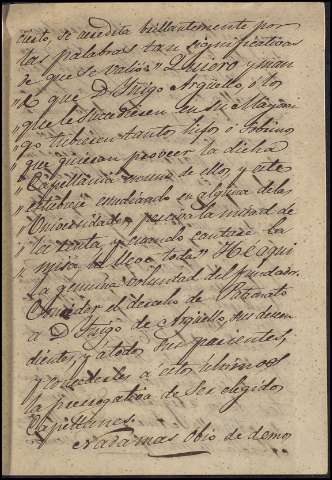 cuito, se acredita brillantemente por
las palabras tan significativas
de que se valió: " Quiero y man
" do que D. Iñigo Argüello, ó los
" que le sucediesen en su Mayoraz
" go tubiesen tantos hijos ó Sobrinos
" que quieran proveer la dicha
" Capellania en uno de ellos, y este
" estubiese estudiando en alguna de las
" Universidades perciva la mitad de
" la renta, y cuando cantare la
" misa la lleve toda" He aqui
la genuina voluntad del fundador.
Conceder el derecho de Patronato
a D. Iñigo de Argüello, sus descen
dientes, y á todos sus parientes,
y concederles a estos ultimos
la prerrogativa de ser elegidos
Capellanes.
Nada mas obio de demos